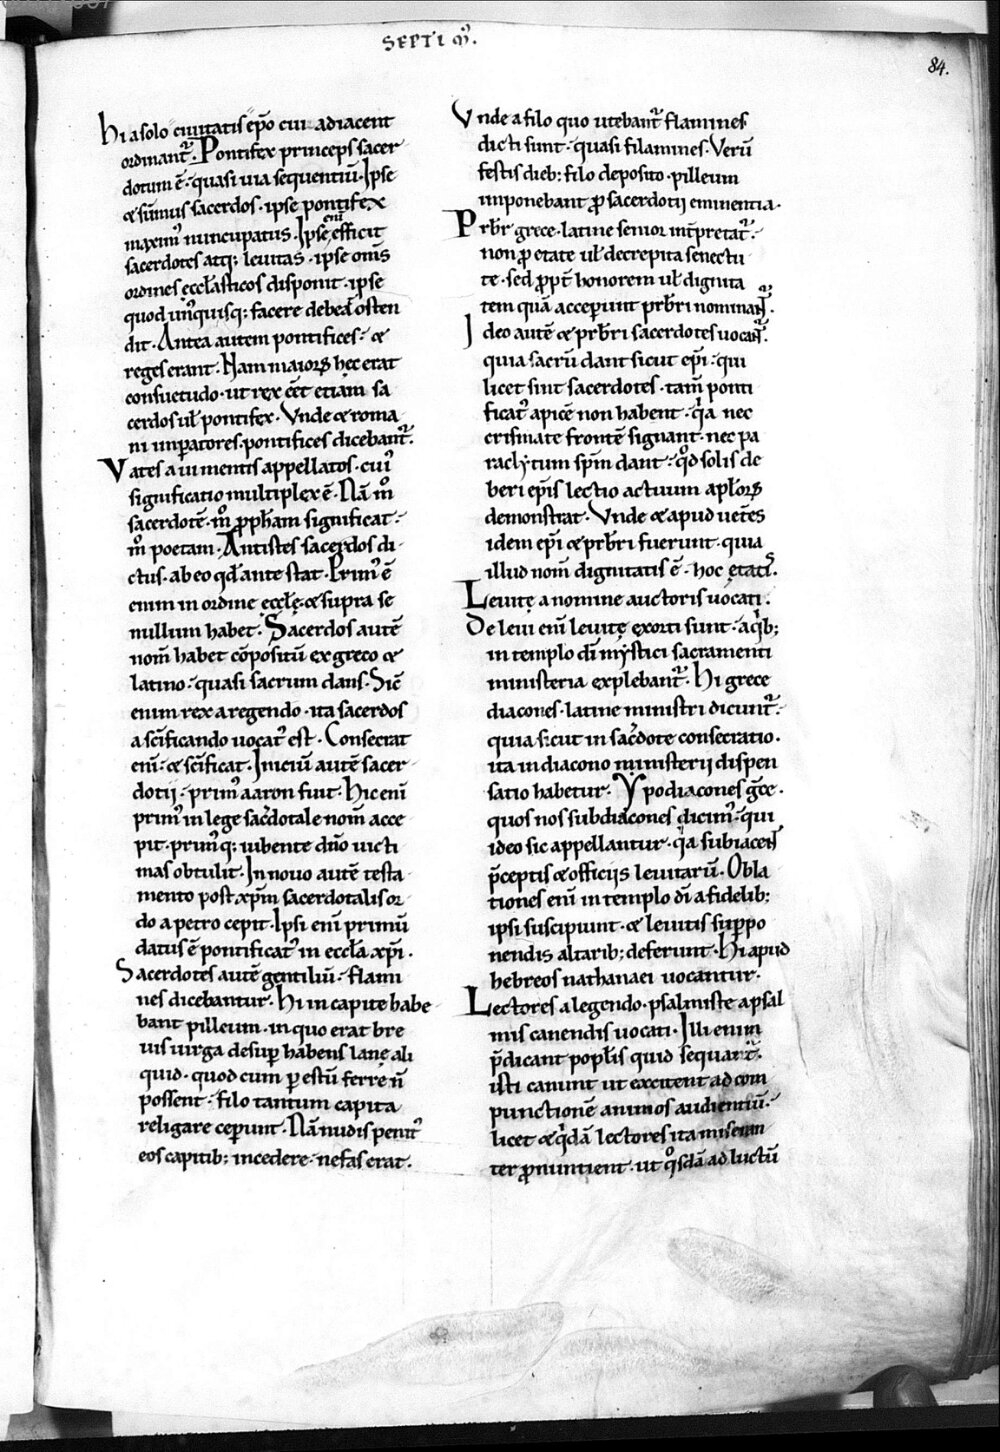 SEPTIM᷒.
84.
hi a solo ciuitatis ep̄o cui adiacent
ordinant᷑. Pontifex princeps sacer
dotum ē. quasi uia sequentiū. Ipse
& sūmus sacerdos. ipse pontifex
maxim᷒ nuncupatus. Ipse eni efficit
sacerdotes atq; leuitas. ipse om̄s
ordines eccłasticos disponit. ipse
quod un᷒quisq; facere debeat osten
dit. Antea autem pontifices. &
reges erant. Nam maioꝝ hec erat
consuetudo. ut rex eēt etiam sa
cerdos uł pontifex. Vnde & roma
ni imꝑatores. pontifices dicebant᷑.
Vates a ui mentis appellatos. cui᷒
significatio multiplex ē. Nā m̊
sacerdotē. m̊ ꝓph̄am significat.
m̊ poetam. Antistes sacerdos di
ctus. ab eo qđ ante stat. Prim᷒ ē
enim in ordine eccłę. & supra se
nullum habet. Sacerdos autē
nom̄ habet cōpositū ex greco &
latino. quasi sacrum dans. Sic̄
enim rex a regendo. ita sacerdos
a sc̄ificando uocat᷑ est. Consecrat
eni᷒. & sc̄ificat. Iniciū autē sacer
dotij. prim᷒ aaron fuit. Hic eni᷒
prim᷒ in lege sac̓dotale nom̄ acce
pit. prim᷒q; iubente dn̄o uicti
mas obtulit. In nouo autē testa
mento post xp̄m sacerdotalis or
do a petro cepit. Ipsi eni᷒ primū
datus ē pontificat᷒ in eccła xp̄i.
Sacerdotes autē gentiliū. flami
nes dicebantur. Hi in capite habe
bant pilleum. in quo erat bre
uis uirga desuꝑ habens lanę ali
quid. quod cum ꝑ estū ferre n̄
possent. filo tantum capita
religare ceperunt. Nā nudis penit᷒
eos capitib; incedere. nefas erat.
Vnde a filo quo utebant᷑ flamines
dicti sunt. quasi filamines. Verū
festis dieb; filo deposito. pilleum
imponebant ꝓ sacerdotij eminentia.
Prb̄r grece. latine senior int̓pretat᷑.
non ꝓ etate uł decrepita senectu
te. sed ꝓpt̓ honorem uł dignita
tem quā acceperunt prb̄ri nominant᷑.
Ideo autē & prb̄ri sacerdotes uocant᷑.
quia sacrū dant sicut ep̄i. qui
licet sint sacerdotes. tam̄ ponti
ficat᷒ apicē non habent. qͥa nec
crismate frontē signant. nec pa
raclytum sp̄m dant. qͦd solis de
beri ep̄is lectio actuum apłoꝝ
demonstrat. Vnde & apud uet̓es
idem ep̄i & prb̄ri fuerunt. quia
illud nom̄ dignitatis ē. hoc etatis.
Leuitę a nomine auctoris uocati.
De leui eni᷒ leuitę exorti sunt. a qͥb;
in templo dī mystici sacramenti
ministeria explebant᷑. Hi grece
diacones. latine ministri dicunt᷑.
quia sicut in sac̓dote consecratio.
ita in diacono ministerij dispen
satio habetur. Ypodiacones gͨce.
quos nos subdiacones dicim᷒. qui
ideo sic appellantur. qͥa subiacent
p̄ceptis & officijs leuitarū. Obla
tiones eni᷒ in templo dī a fidelib;
ipsi suscipiunt. & leuitis suꝑpo
nendis altarib; deferunt. Hi apud
hebreos nathanaei uocantur.
Lectores a legendo. psalmiste a psal
mis canendis uocati. Illi enim
p̄dicant popłis quid sequant᷑.
isti canunt ut excitent ad com
punctionē animos audientiū.
licet & qͥdā lectores ita miseran
ter ꝓnuntient. ut qͦsdā ad luctū